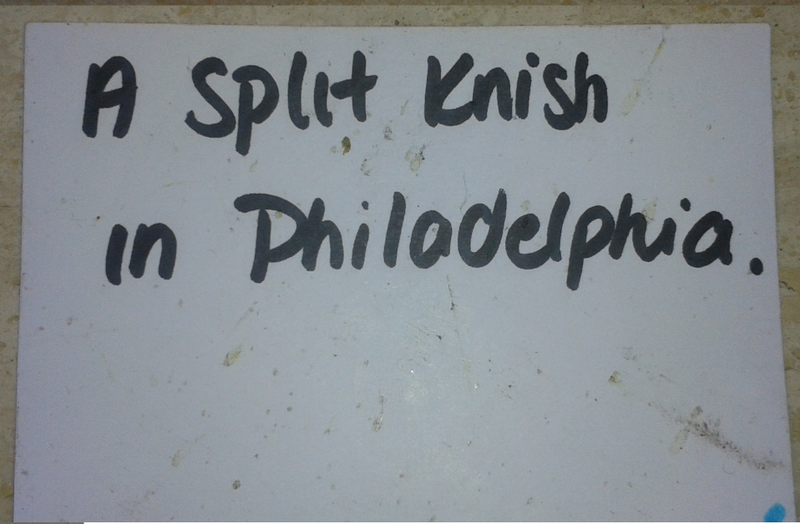 A Split Knish
in Philadelphia.